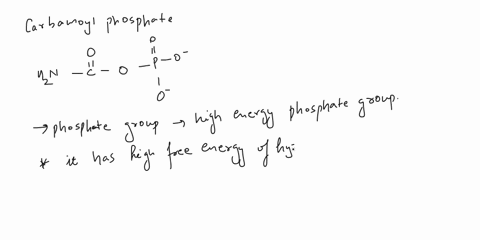 Carbamoyl phosphate
O O
|| ||
H2N - C - O - P - O-
|
O-
→ phosphate group → high energy phosphate group.
* it has high free energy of hy